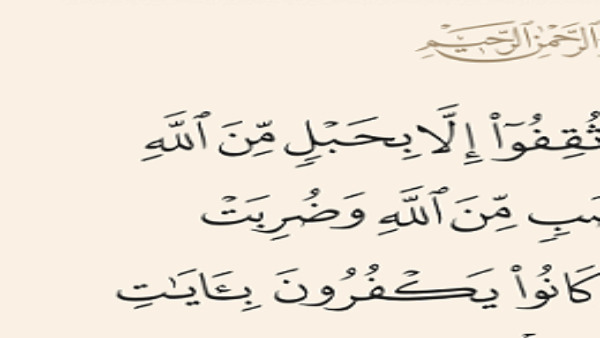 ٱلرَّحْمَٰنِ ٱلرَّحِيمِ
ثُقِفُوٓا۟ إِلَّا بِحَبْلٍ مِّنَ ٱللَّهِ
مِّنَ ٱللَّهِ وَضُرِبَتْ
كَانُوا۟ يَكْفُرُونَ بِـَٔايَٰتِ